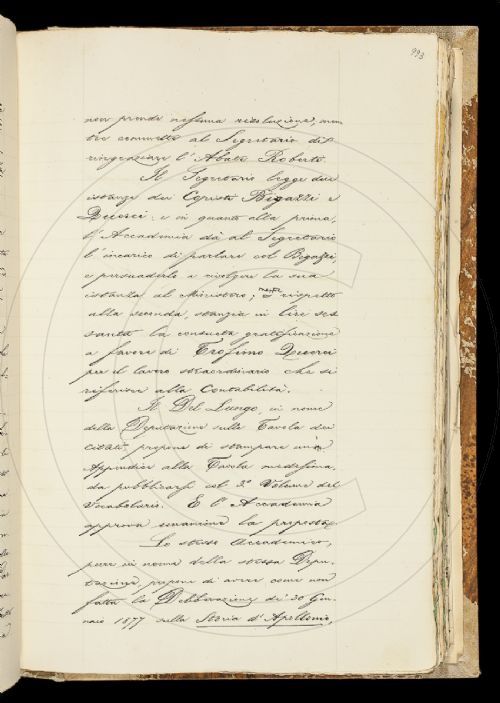 993
non prende nessuna risoluzione, men
tre commette al Segretario di
ringraziare l'Abate Roberti.
Il Segretario legge due
istanze dei Copisti Bigazzi e
Decorsi: e in quanto alla prima,
l'Accademia dà al Segretario
l'incarico di parlare col Bigazzi,
e persuaderlo a rivolgere la sua
istanza al Ministero; mentre rispetto
alla seconda, stanzia in lire ses
santa la consueta gratificazione
a favore di Trofimo
per il lavoro straordinario che si
riferisce alla Contabilità.
Il Del Lungo, in nome
della Deputazione sulla Tavola dei
citati, propone di stampare una
Appendice alla Tavola medesima,
da pubblicarsi col 3º Volume del
Vocabolario. E l'Accademia
approva unanime la proposta.
Lo stesso Accademico,
pure in nome della stessa Depu
tazione, propone di avere come non
fatta la Deliberazione de' 30 Gen
naio 1877 sulla Storia d'Apollonio,